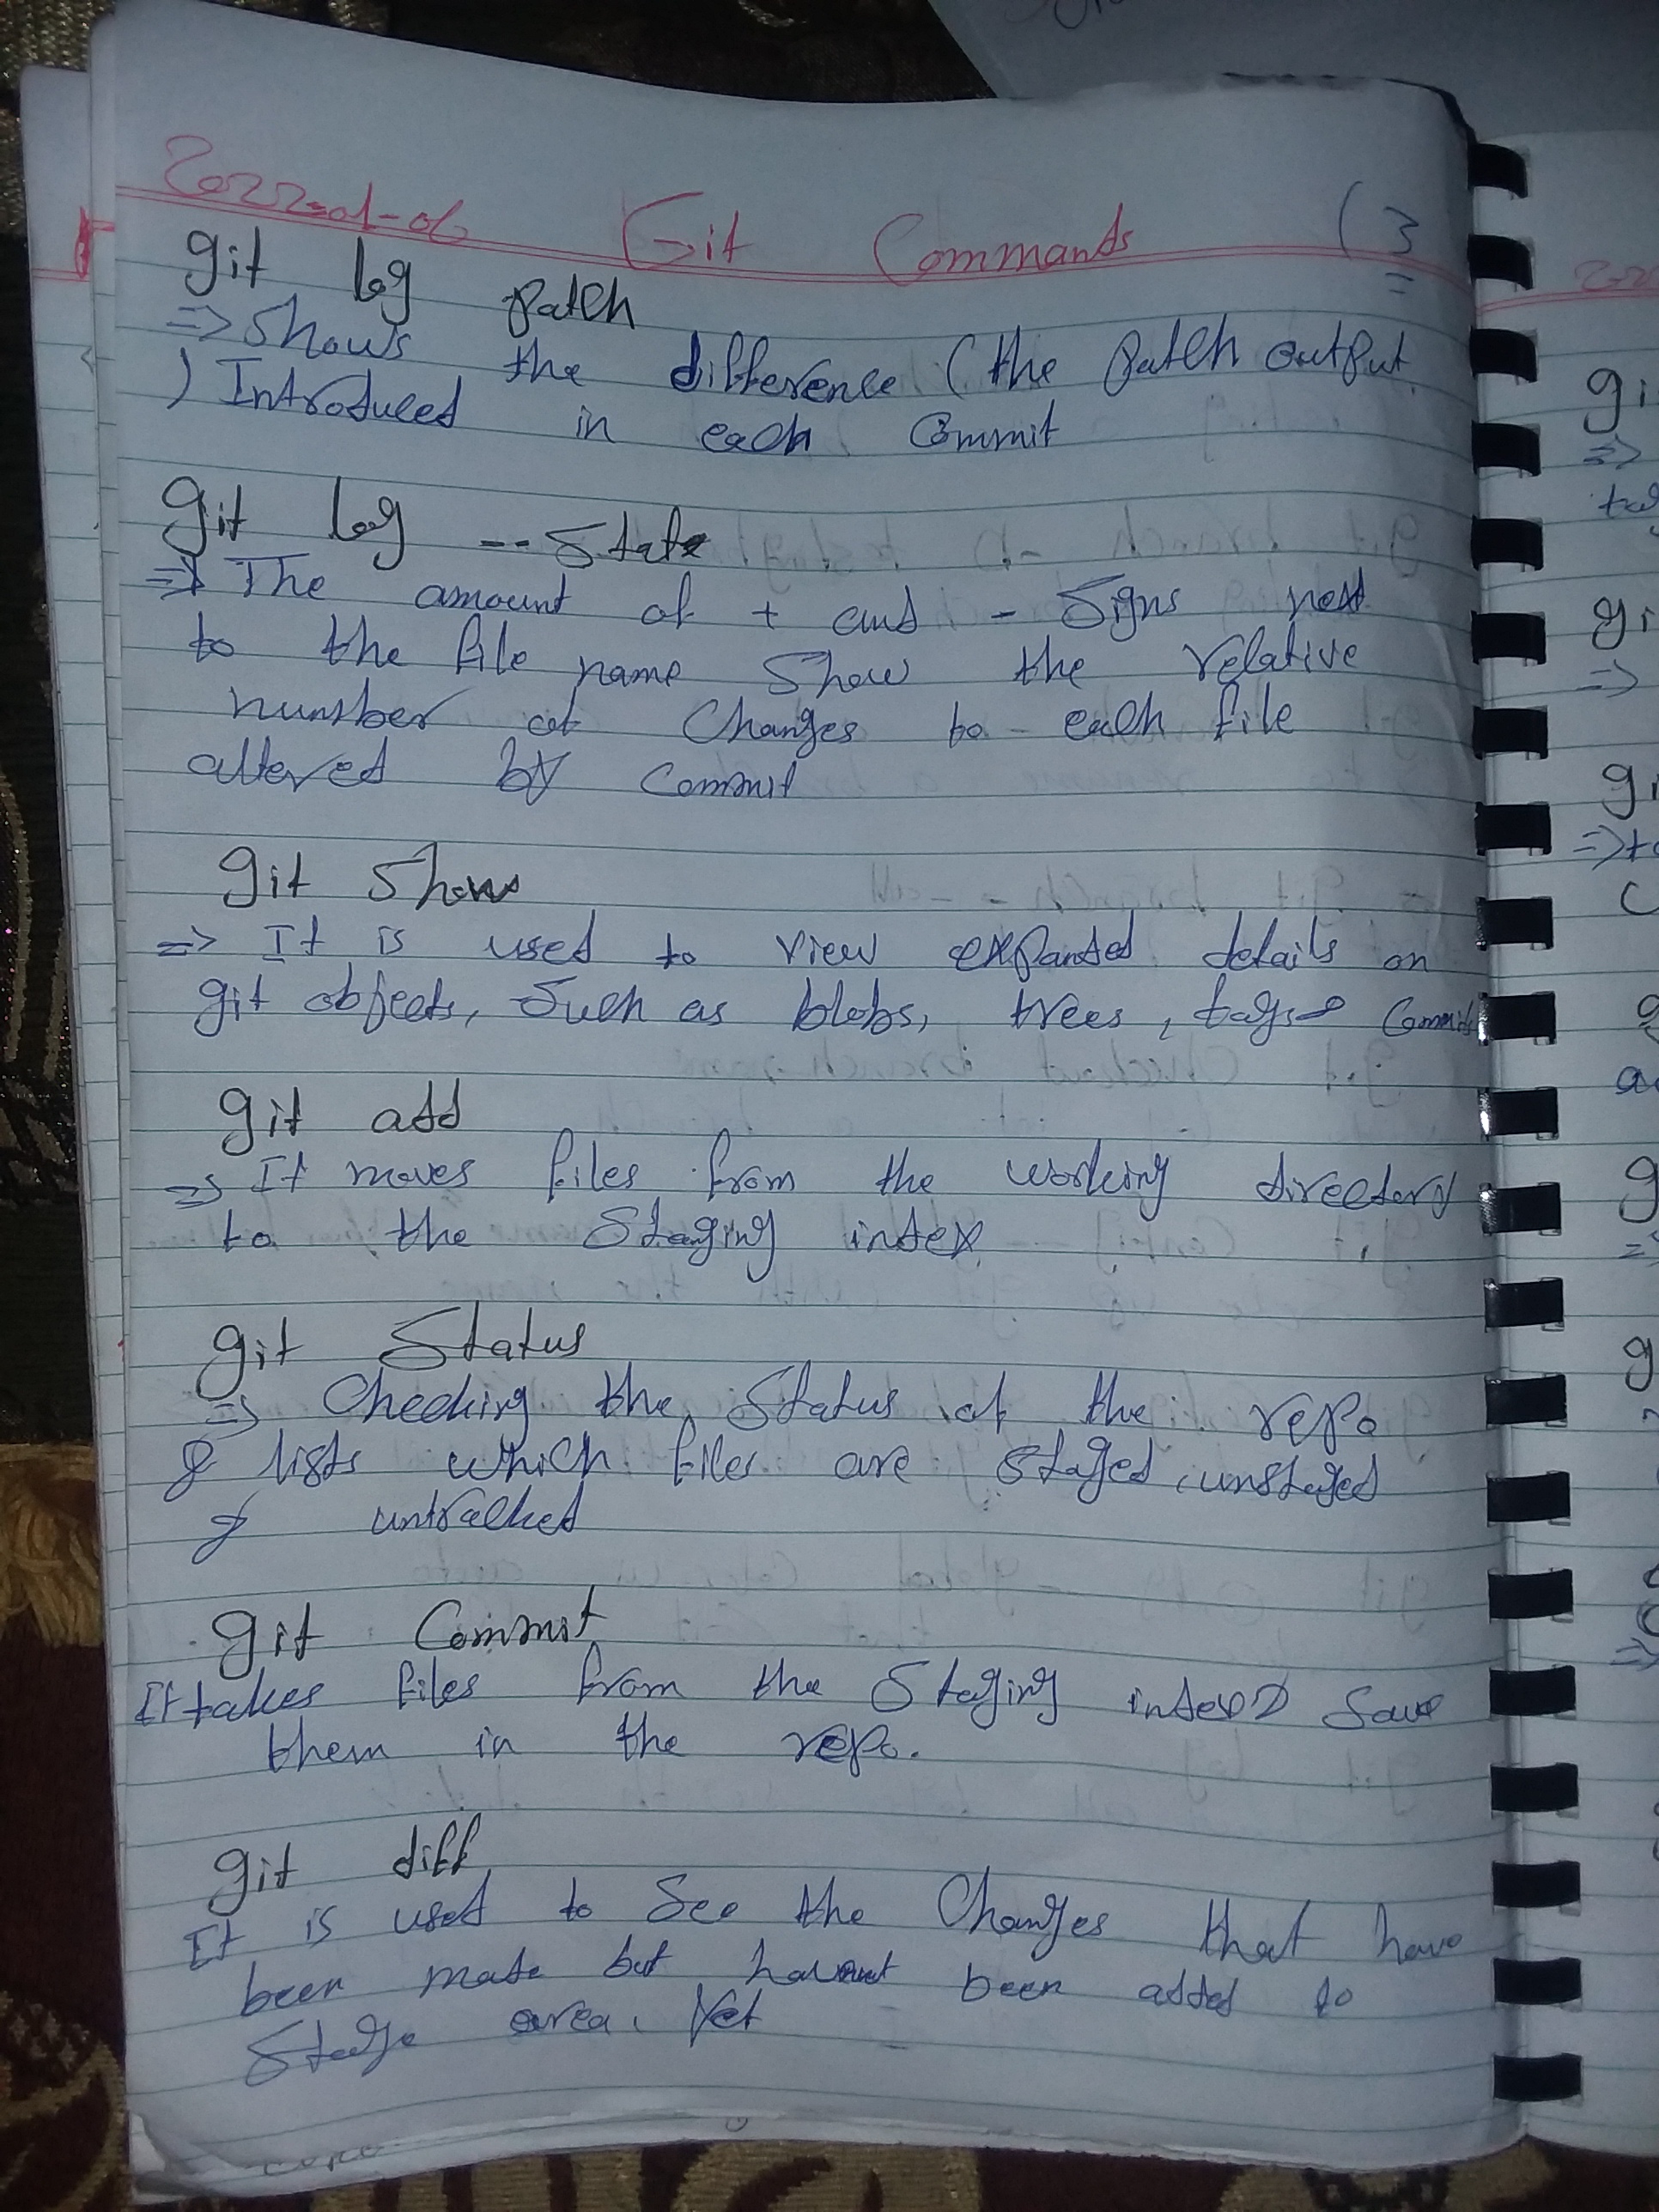 2022-01-06 Git Commands (3
git log patch
=> Shows the difference (the patch output
) Introduced in each Commit
git log --stat
=> The amount of + and - Signs next
to the file name Show the relative
number of Changes to each file
altered by Commit
git Show
=> It is used to view expanded details on
git objects, Such as blobs, trees, tags & Commits
git add
=> It moves files from the working directory
to the Staging index
git Status
=> Checking the Status of the repo
& lists which files are staged, unstaged
& untracked
git Commit
It takes files from the Staging index & Save
them in the repo.
git diff
It is used to See the Changes that have
been made but havent been added to
Stage area. Yet